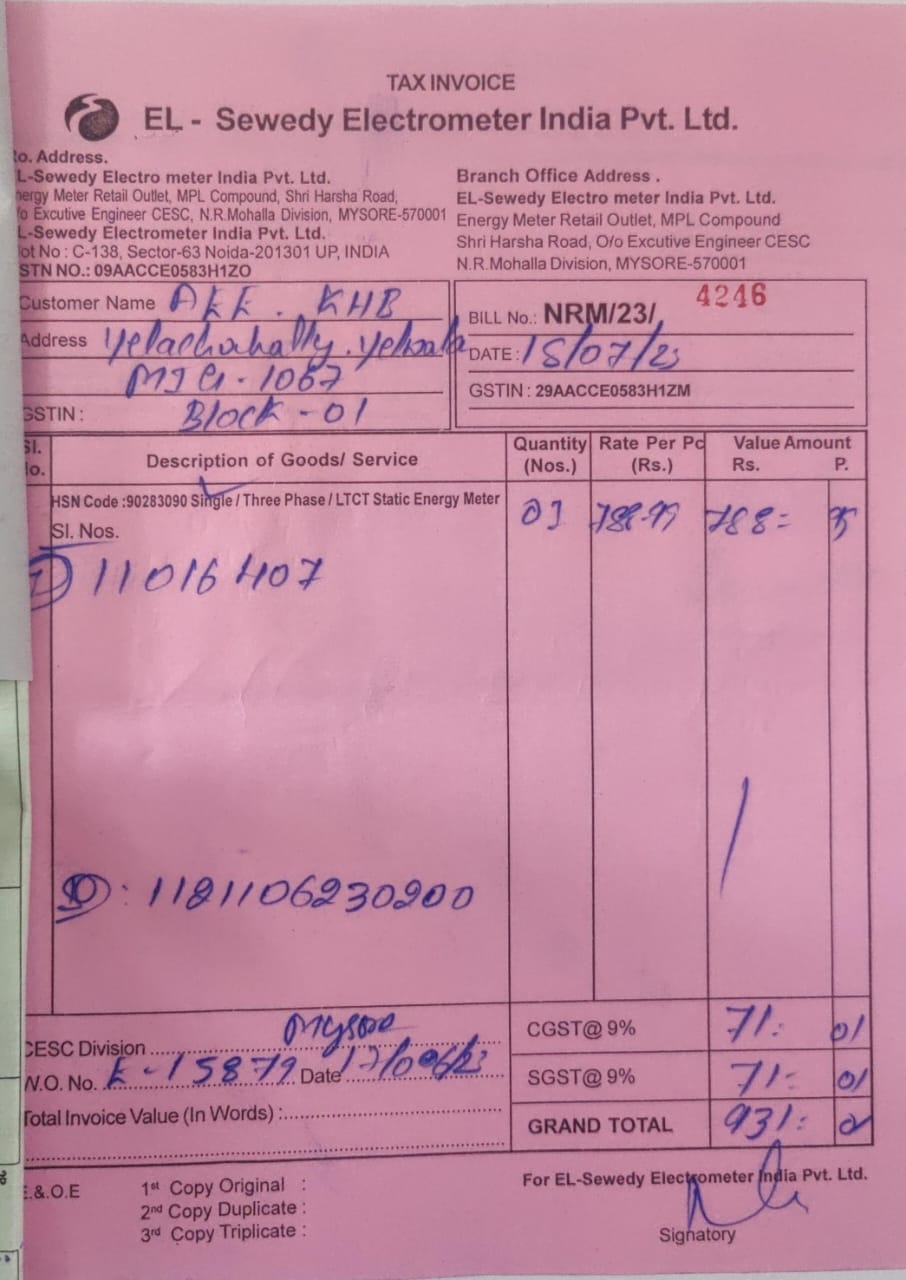 TAX INVOICE
EL - Sewedy Electrometer India Pvt. Ltd.
o. Address.
L-Sewedy Electro meter India Pvt. Ltd.
nergy Meter Retail Outlet, MPL Compound, Shri Harsha Road,
/o Excutive Engineer CESC, N.R.Mohalla Division, MYSORE-570001
L-Sewedy Electrometer India Pvt. Ltd.
ot No : C-138, Sector-63 Noida-201301 UP, INDIA
STN NO.: 09AACCE0583H1ZO
Branch Office Address .
EL-Sewedy Electro meter India Pvt. Ltd.
Energy Meter Retail Outlet, MPL Compound
Shri Harsha Road, O/o Excutive Engineer CESC
N.R.Mohalla Division, MYSORE-570001
Customer Name AEE . KHB
Address Yelachahally . Yelwala
MIG - 1067
GSTIN : Block - 01
BILL No.: NRM/23/ 4246
DATE : 15/07/23
GSTIN : 29AACCE0583H1ZM
Sl. No. Description of Goods/ Service Quantity (Nos.) Rate Per Pc (Rs.) Value Amount Rs. P.
HSN Code :90283090 Single / Three Phase / LTCT Static Energy Meter 01 788=
Sl. Nos.
1) 11016407
: 1181106230200
CESC Division Mysore
W.O. No. K-15879 Date 17/06/23
Total Invoice Value (In Words) :
CGST@ 9% 71: 01
SGST@ 9% 71- 01
GRAND TOTAL 931:
E.&.O.E
1st Copy Original :
2nd Copy Duplicate :
3rd Copy Triplicate :
For EL-Sewedy Electrometer India Pvt. Ltd.
Signatory